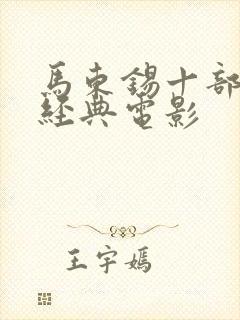 馬東錫十部
經典電影
王宇嫣